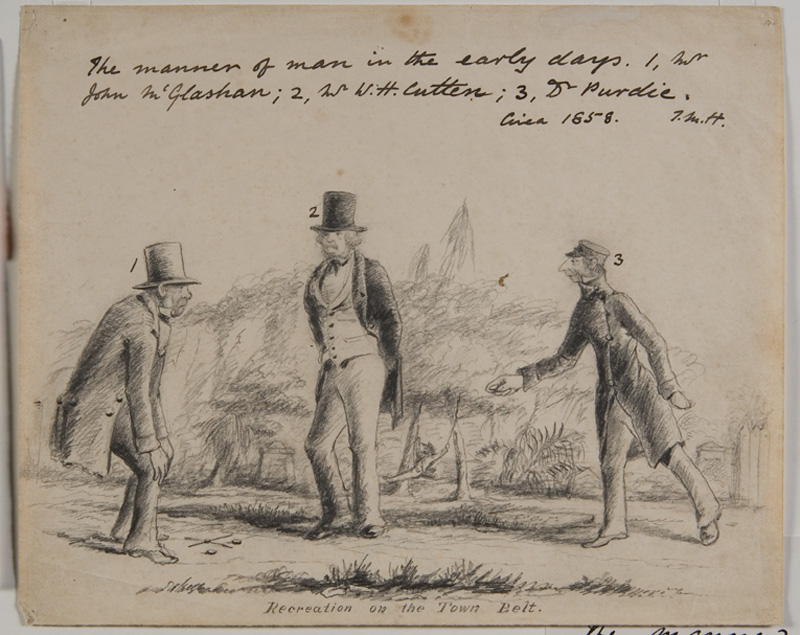 The manner of man in the early days. 1, Mr
John McGlashan; 2, Mr W.H. Cutten; 3, Dr Purdie.
Circa 1858. T.M.H.
2
1
3
Recreation on the Town Belt.
The